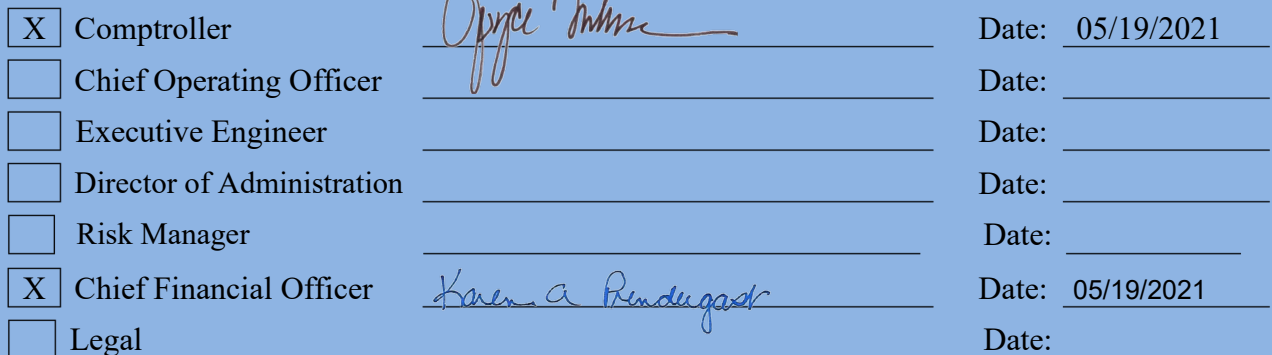 X Comptroller Date: 05/19/2021
Chief Operating Officer Date:
Executive Engineer Date:
Director of Administration Date:
Risk Manager Date:
X Chief Financial Officer Karen A Pendergast Date: 05/19/2021
Legal Date: